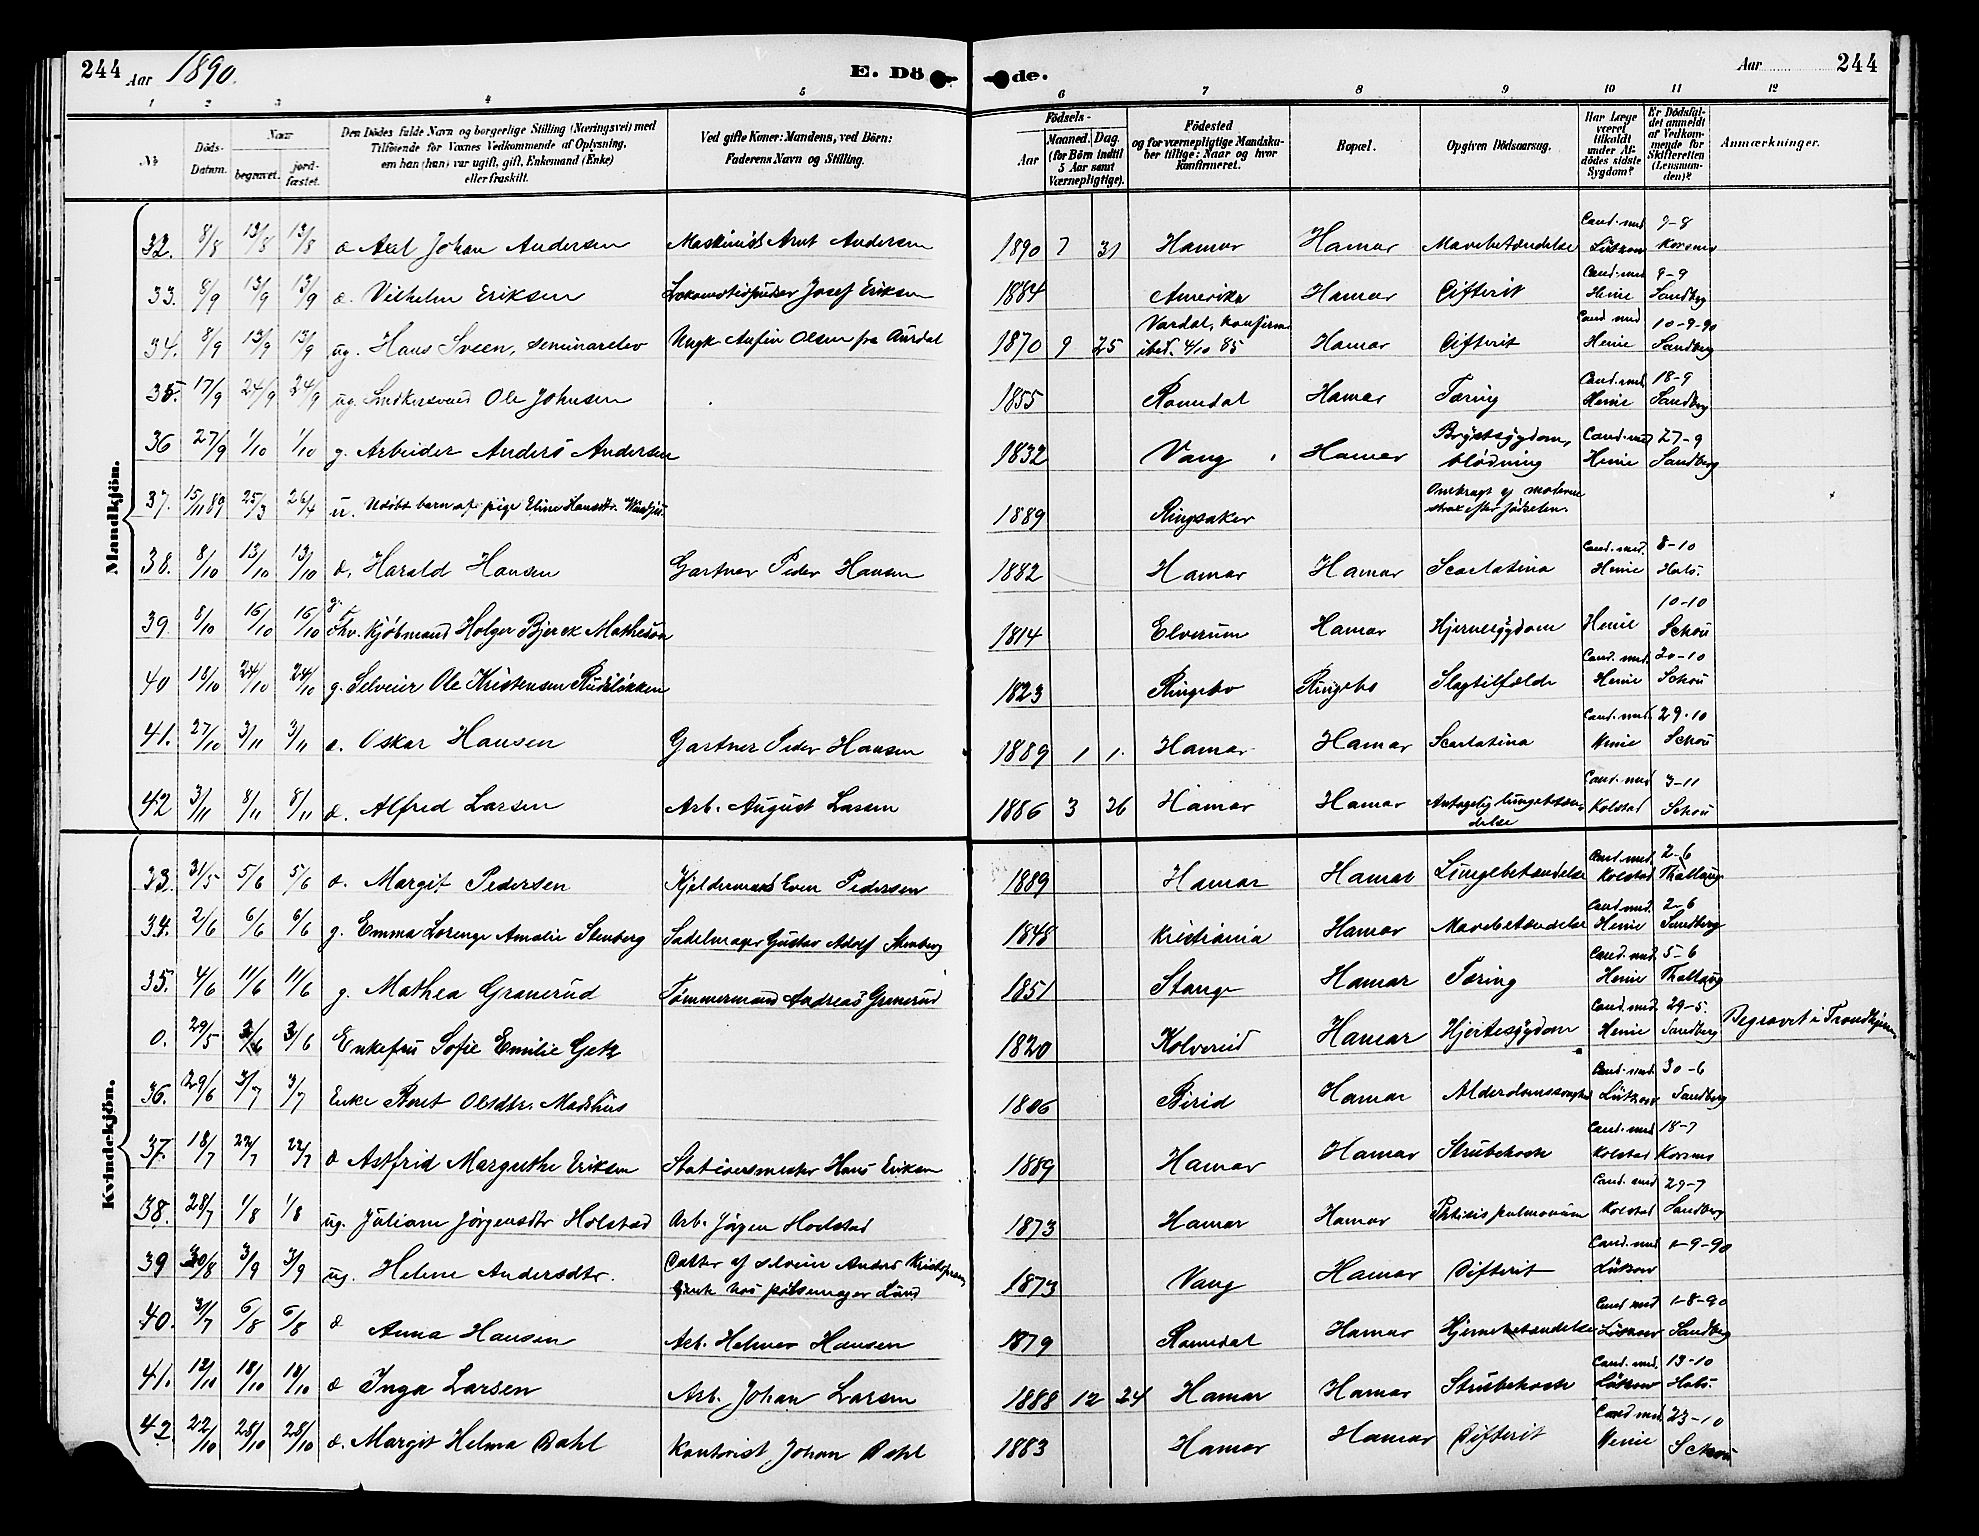 244 Aar 1890. E. Dö de. Aar 244
1 2 3 4 5 6 7 8 9 10 11 12
No Döds-Datum. Naar begravet. jord-fæstet. Den Dödes fulde Navn og borgerlige Stilling (Næringsvei) med Tilföiende for Voxnes Vedkommende af Oplysning, om han (hun) var ugift, gift, Enkemand (Enke) eller fraskilt. Ved gifte Koner: Mandens, ved Börn: Faderens Navn og Stilling. Födsels- Aar Maaned. Dag. (for Börn indtil 5 Aar samt Værnepligtige). Födested og for værnepligtige Mandskaber tillige: Naar og hvor Konfirmeret. Bopæl. Opgiven Dödsaarsag. Har Læge været tilkaldt under Afdödes sidste Sygdom? Er Dödsfaldet anmeldt af Vedkommende for Skifteretten (Lensmanden)? Anmærkninger.
Mandkjön.
32. 8/8 13/8 13/8 d. Axel Johan Andersen Maskinist Arnt Andersen 1890 7 31 Hamar Hamar Mavebetændelse Cand. med Lütkow 9-8 Korsmo
33. 8/9 13/9 13/9 d. Vilhelm Eriksen Lokomotivpudser Josef Eriksen 1884 Amerika Hamar Difterit Cand. med Heine 9-9 Sandberg
34. 8/9 13/9 13/9 ug. Hans Sveen, seminarelev Ungk. Anfin Olsen fra Aurdal 1870 9 25 Vardal, konfirm. ibid. 4/10 85 Hamar Difterit Cand. med Heine 10-9-90 Sandberg
35. 17/9 24/9 24/9 ug. Snedkersvend Ole Johnsen 1855 Romedal Hamar Tæring Cand. med. Heine 18-9 Sandberg
36 27/9 1/10 1/10 g. Arbeider Anders Andersen 1832 Vang Hamar Brystsygdom, blødning Cand. med Heine 27-9 Sandberg
37. 15/11 89 25/3 26/4 u. Udøbt barn af pige Eline Hansdtr. 1889 Ringsaker Ombragt af moderen strax efter fødselen.
38. 8/10 13/10 13/10 d. Harald Hansen Gartner Peder Hansen 1882 Hamar Hamar Scarlatina Cand. med. Heine 8-10 Hals.
39. 8/10 16/10 16/10 g. Fhv. Kjøbmand Holger Bjerck Matheson 1814 Elverum Hamar Hjernesygdom Heine 10-10 Schou
40 18/10 24/10 24/10 g. Selveier Ole Kristensen Rudsløkken 1823 Ringebo Ringebo Slagtilfælde Cand. med. Heine 20-10 Schou
41. 27/10 3/11 3/11 d. Oskar Hansen Gartner Peder Hansen 1889 1 1. Hamar Hamar Scarlatina Cand. med. Heine 29-10 Schou
42 3/11 8/11 8/11 d. Alfred Larsen Arb. August Larsen 1886 3 26 Hamar Hamar Antagelig lungebetændelse Cand. med Kolstad 3-11 Schou
Kvindekjön.
33. 31/5 5/6 5/6 d. Margit Pedersen Kjeldermand Even Pedersen 1889 Hamar Hamar Lungebetændelse Cand. med. Kolstad 2-6 Thallaug
34. 2/6 6/6 6/6 g. Emma Lorenze Amalie Stenberg Sadelmager Gustav Adolf Stenberg 1848 Kristiania Hamar Mavebetændelse Cand. med. Heine 2-6 Sandberg
35. 4/6 11/6 11/6 g. Mathea Granerud Tømmermand Andreas Granerud 1851 Stange Hamar Tæring Cand. med. Heine 5-6 Thallaug
0. 29/5 3/6 3/6 Enkefru Sofie Emilie Getz 1820 Kolvereid Hamar Hjertesygdom Cand. med. Heine 29-5. Sandberg Begravet i Trondhjem
36. 29/6 3/7 3/7 Enke Beret Olsdtr. Madshus 1806 Birid Hamar Alderdomssvaghed Cand. med. Lütkow 30-6 Sandberg
37. 18/7 22/7 22/7 d. Astfrid Margrethe Eriksen Stationsmester Hans Eriksen 1889 Hamar Hamar Strubehoste Cand. med Kolstad 18-7 Korsmo
38. 28/7 1/8 1/8 ug. Juliane Jørgensdtr Holstad Arb. Jørgen Holstad 1873 Hamar Hamar Phtisis pulmonum Cand. med Kolstad 29-7 Sandberg
39 30/8 3/9 3/9 ug. Helene Andersdtr. Datter af selveier Anders hos pølsemager Lund 1873 Vang Hamar Difterit Cand. med Lütkow 1-9-90
40. 31/7 6/8 6/8 d Anna Hansen Arb. Helmer Hansen 1879 Romedal Hamar Hjernebetændelse Cand. med Lütkow 1-8-90 Sandberg
41. 12/10 18/10 18/10 d Inga Larsen Arb. Johan Larsen 1888 12 24 Hamar Hamar Strubehoste Cand. med. Lütkow 13-10 Hals.
42. 22/10 28/10 28/10 d. Margit Helma Dahl Kontorist Johan Dahl 1883 Hamar Hamar Difterit Cand. med. Heine 23-10 Schou